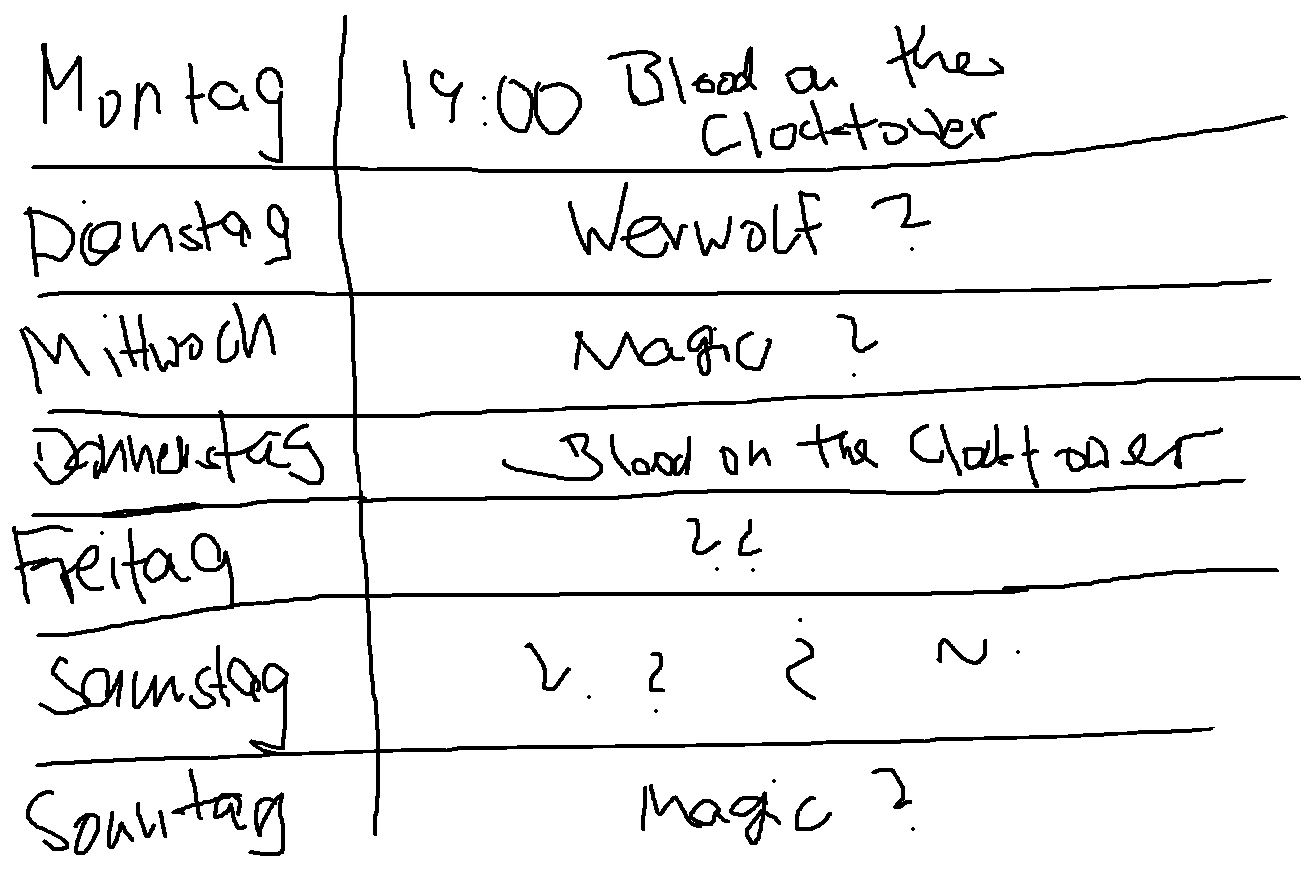 Montag 19:00 Blood on the
Clocktower
Dienstag Werwolf ?
Mittwoch Magic ?
Donnerstag Blood on the Clocktower
Freitag ? ?
Samstag ? ? ¿ ~.
Sonntag Magic ?